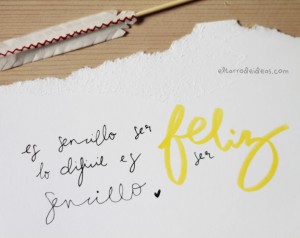 elturrodeideas.com
es sencillo ser feliz
lo difícil es ser
sencillo